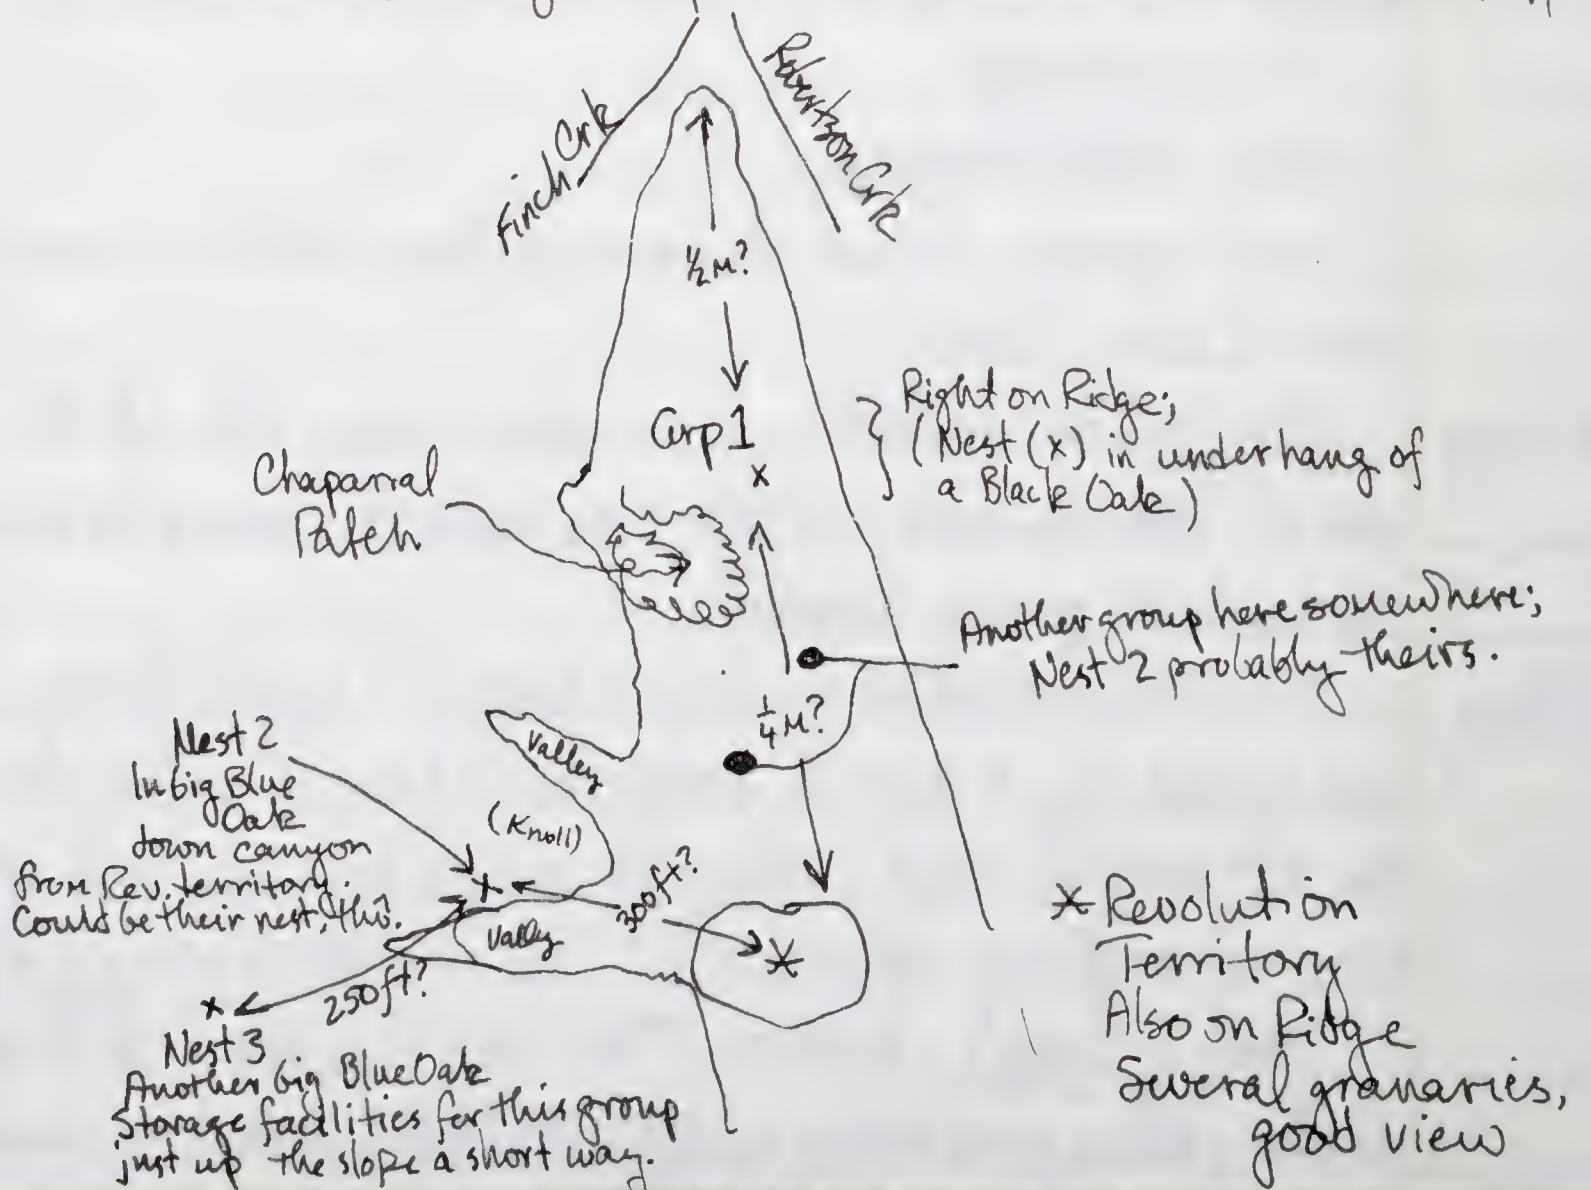 Finch Crk
Robertson Crk
½ M?
Grp 1
x
Right on Ridge;
(Nest (x) in underhang of
a Black Oak)
Chaparral
Patch
Another group here somewhere;
Nest 2 probably theirs.
¼ M?
Valley
(Knoll)
Nest 2
In big Blue
Oak
down canyon
from Rev. territory.
Could be their nest, tho.
x
300 ft?
Valley
250 ft?
x
Nest 3
Another big Blue Oak
Storage facilities for this group
just up the slope a short way.
* Revolution
Territory
Also on Ridge
Several granaries,
good view